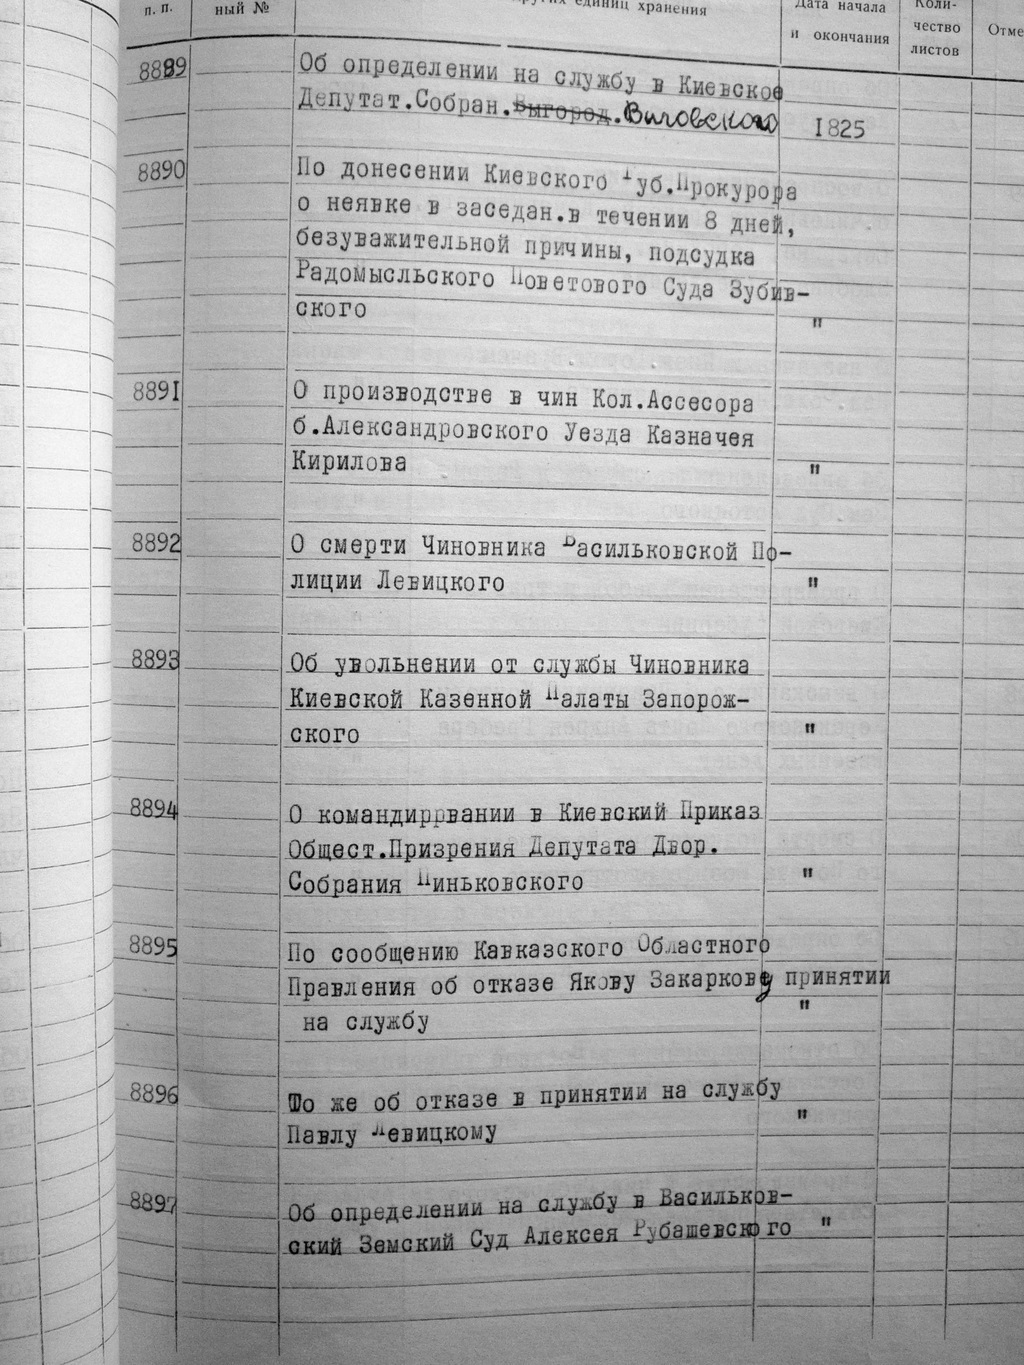 п. п.
ный №
других единиц хранения
Дата начала
и окончания
Коли-
чество
листов
Отме
8889
Об определении на службу в Киевское
Депутат.Собран.Выгород.Виговского
1825
8890
По донесении Киевского Губ.Прокурора
о неявке в заседан.в течении 8 дней,
безуважительной причины, подсудка
Радомысльского Поветового Суда Зубив-
ского "
8891
О производстве в чин Кол.Ассесора
б.Александровского Уезда Казначея
Кирилова "
8892
О смерти Чиновника Васильковской По-
лиции Левицкого "
8893
Об увольнении от службы Чиновника
Киевской Казенной Палаты Запорож-
ского "
8894
О командиррвании в Киевский Приказ
Общест.Призрения Депутата Двор.
Собрания Пиньковского "
8895
По сообщению Кавказского Областного
Правления об отказе Якову Закаркову принятии
на службу "
8896
То же об отказе в принятии на службу
Павлу Левицкому "
8897
Об определении на службу в Васильков-
ский Земский Суд Алексея Рубашевского "